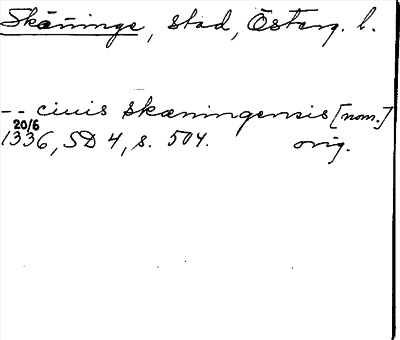 Skänninge, stad, Österg. l.
-- ciuis skæningensis [nom.]
20/6
1336, SD 4, s. 504. orig.